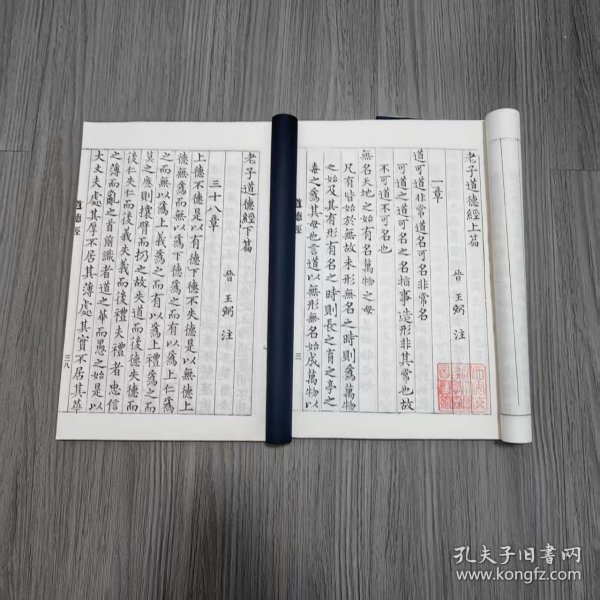 老子道德經上篇
晉 王弼 注
一章
道可道非常道名可名非常名
可道之道可名之名指事造形非其常也故
不可道不可名也
無名天地之始有名萬物之母
凡有皆始於無故未形無名之時則爲萬物
之始及其有形有名之時則長之育之亭之
毒之爲其母也言道以無形無名始成萬物以
道德經
三
老子道德經下篇
晉 王弼 注
三十八章
上德不德是以有德下德不失德是以無德上
德無爲而無以爲下德爲之而有以爲上仁爲
之而無以爲上義爲之而有以爲上禮爲之而
莫之應則攘臂而扔之故失道而後德失德而
後仁失仁而後義失義而後禮夫禮者忠信
之薄而亂之首前識者道之華而愚之始是以
大丈夫處其厚不居其薄處其實不居其華
道德經
三八
孔夫子旧书网
www.kongfz.com